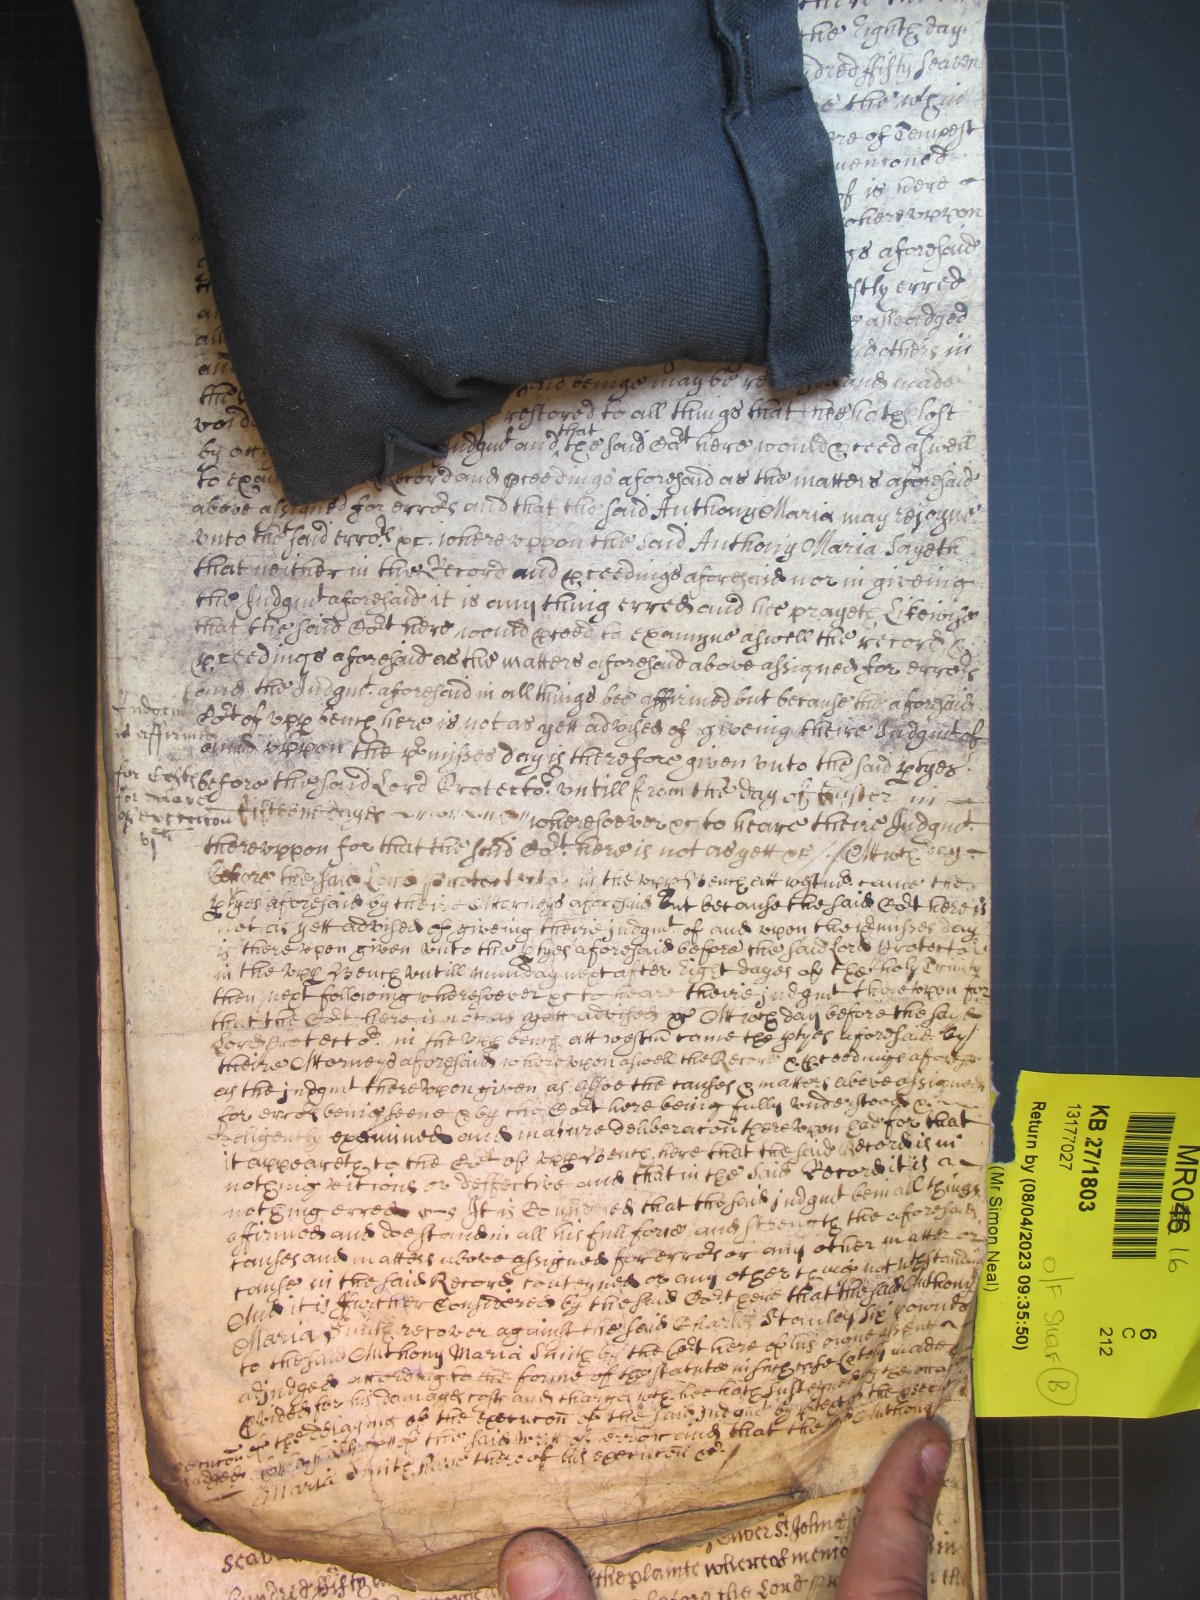 the Eight day
dred ffifty seaven
e the which
re of Tempest
menconed
of is here
whereuppon
gs aforesaid
stly erred
alleadged
others in
and beinge may be re and made
the
void restored to all things that hee hath lost
by Judgmt and that the said Cort here would pceed aswell
to exa Record and pceedings aforesaid as the matters aforesaid
above assigned for errors and that the said Anthony Maria may rejoyne
unto the said errors &c. whereuppon the said Anthony Maria Sayeth
that neither in the Record and pceedings aforesaid nor in giveing
the Judgmt aforesaid it is any thing erred and hee prayeth Likewise
that the said Cort here would pceed to examyne aswell the record &
pceedings aforesaid as the matters aforesaid above assigned for errors
and the Judgmt aforesaid in all things bee affirmed but because the aforesaid
Cort of upp bench here is not as yett advised of giveing theire Judgmt of
and uppon the pmisses day is therefore given unto the said ptyes
before the said Lord Protector untill from the day of Easter in
fifteene dayes wheresoever &c to heare theire Judgmt
thereuppon for that the said Cort here is not as yett &c Att wch day
before the said Lord Protector in the upp Bench att westmr came the
ptyes aforesaid by theire Attorneys aforesaid But because the said Cort here is
not as yett advised of giveing theire judgmt of and upon the pmisses day
is thereupon given unto the ptyes aforesaid before the said Lord Protector
in the upp Bench untill munday next after Eight dayes of the holy Trinity
then next following wheresoever &c to heare theire judgmt thereupon for
that the Cort here is not as yett advised &c Att wch day before the said
Lord Protector in the upp bench att westm came the ptyes aforesaid by
theire Attorneys aforesaid whereupon aswell the Record & pceedings aforesd
as the judgmt thereupon given as alsoe the causes & matters above assigned
for errors being seene & by the Cort here being fully understood &
deligently examined and mature deliberacon thereupon had for that
it appeareth to the Cort of upp Bench here that the said Record is in
nothing vitious or deffective and that in the said Record it is
nothing erred It is Considered that the said judgmt be in all things
affirmed and doe stand in all his full force and strength the aforesaid
causes and matters above assigned for errors or any other matter or
cause in the said Record conteyned or any other thing notwthstanding
And it is ffurther Considered by the said Cort here that the said Anthony
Maria Smith recover against the said Charles Stanley Six pounds
to the said Anthony Maria Smith by the Cort here of his owne assent
adjudged according to the forme of the statute in such case lately made &
pvided for his damages costs and charges wch hee hath susteyned by the occasion
of the delaying of the execucon of the said Judgmt by ptext of the psecu
of the said writt of error and that the said Anthony
Maria Smith have thereof his execucon &c
Judgmt
is affirmed
for Costs
for
of execucon
execucon
Judged
seav Oliver St John
hundred fifty the plainte whereof menc
before the Lord
MR046 16
6
C
212
KB 27/1803
13177027
Return by (08/04/2023 09:35:50)
(Mr Simon Neal)
O/F Shelf B